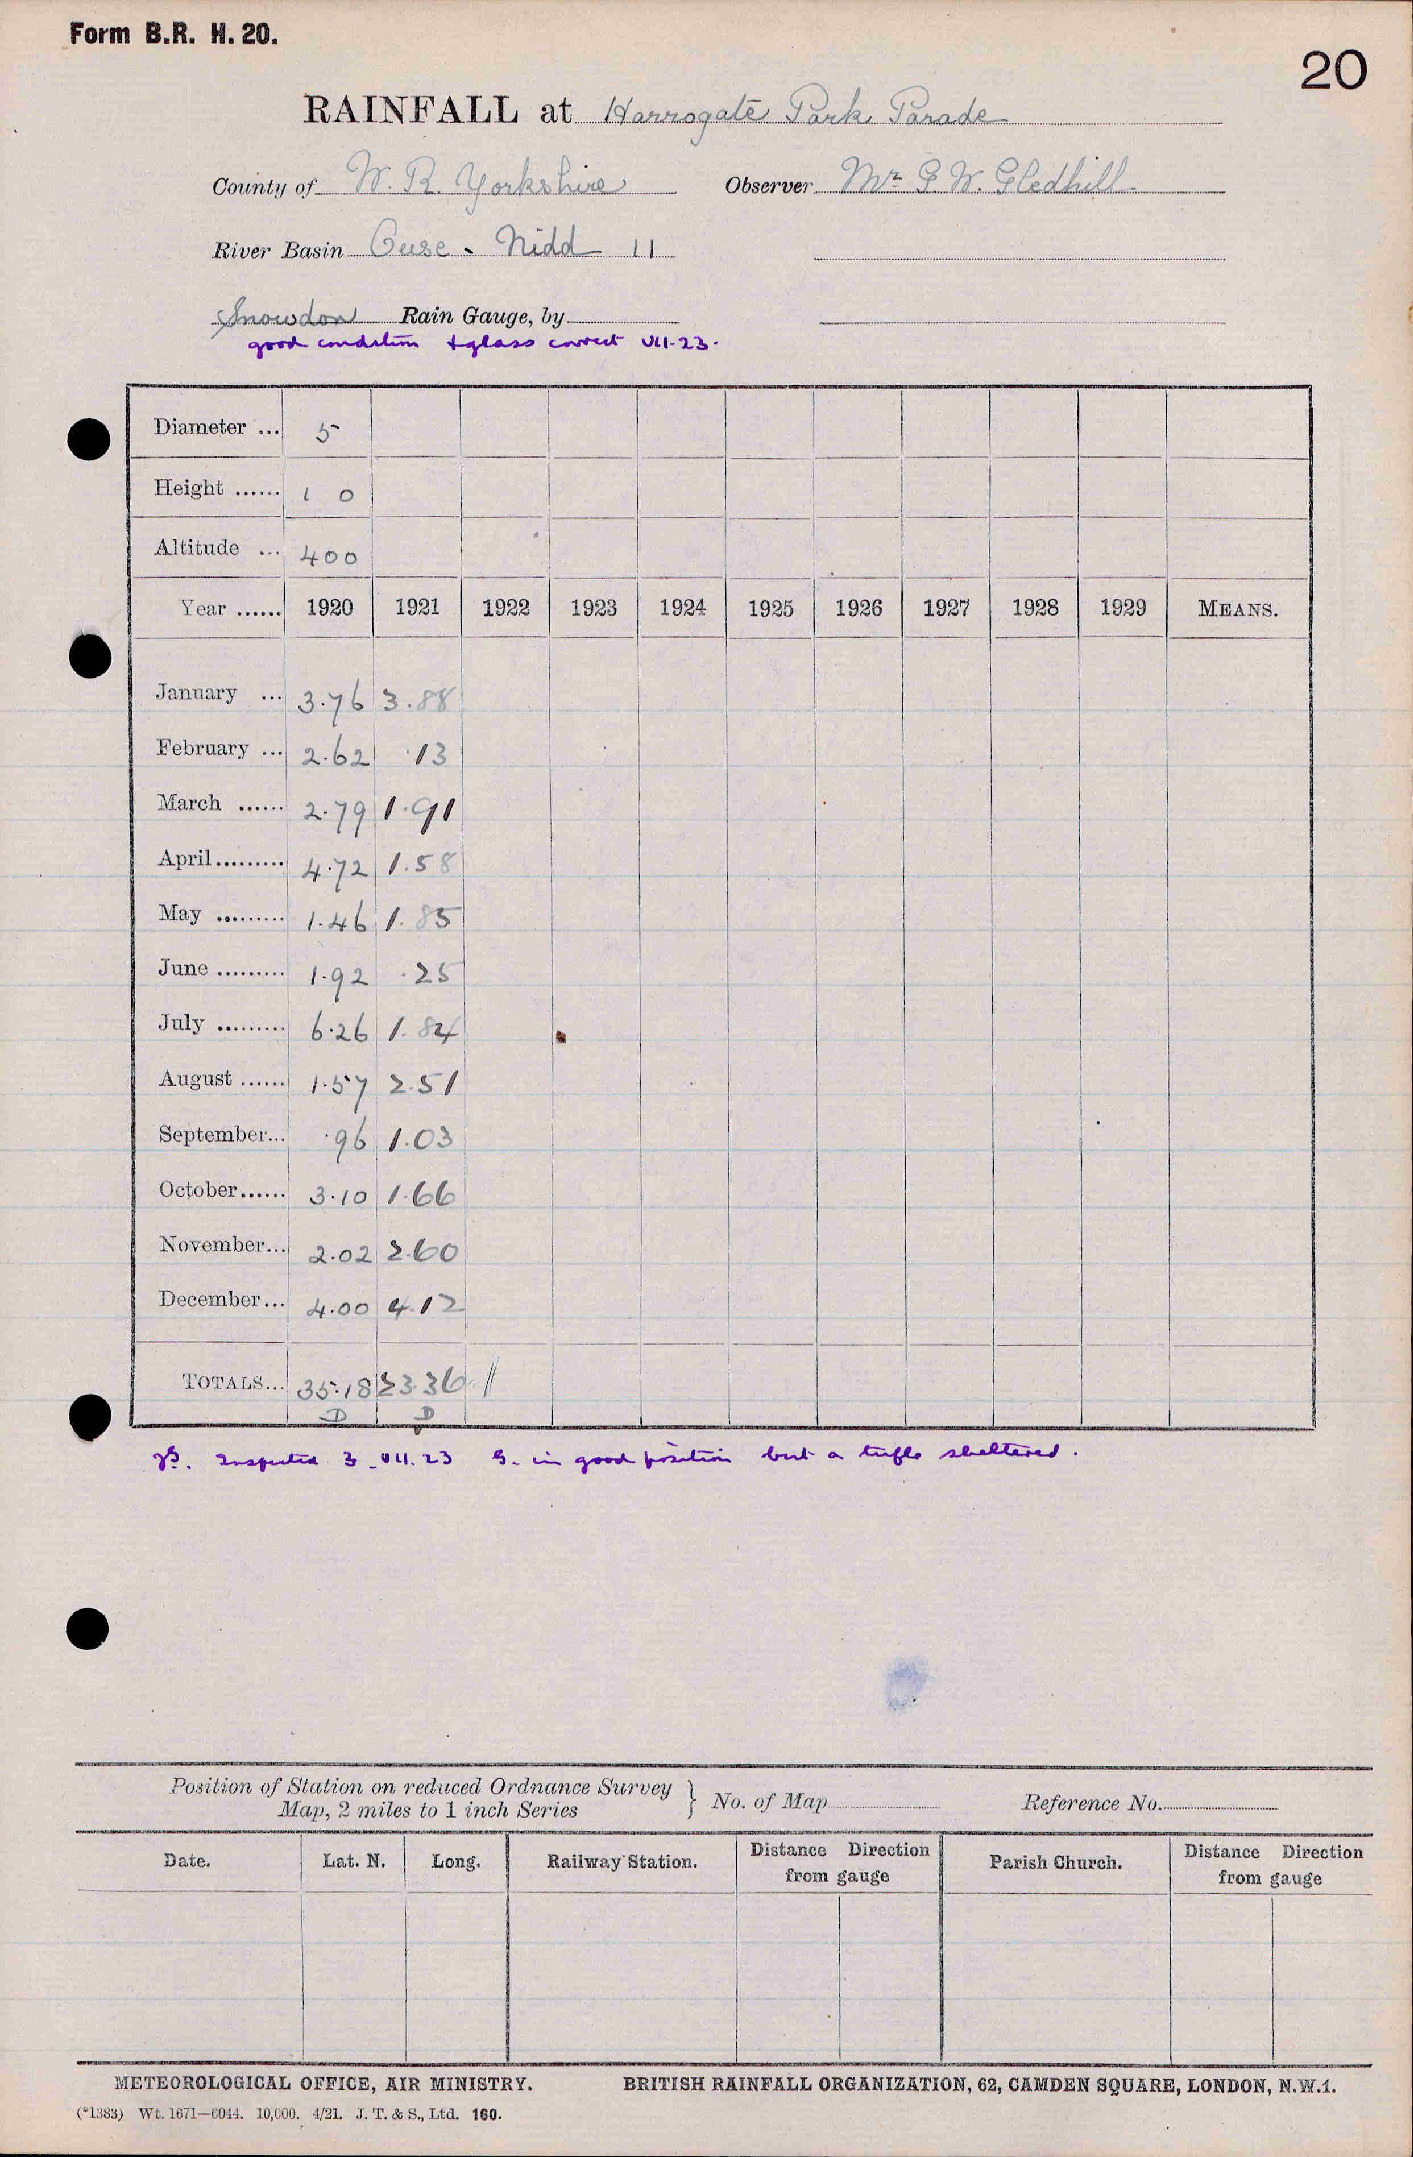 Form B.R. H. 20.
20
RAINFALL at Harrogate Park Parade
County of W. R. Yorkshire Observer Mr G W. Gledhill
River Basin Ouse - Nidd 11
Snowdon Rain Gauge, by
good condition & glass correct VII.23.
Diameter ... 5
Height ...... 1 0
Altitude ... 400
Year ...... 1920 1921 1922 1923 1924 1925 1926 1927 1928 1929 MEANS.
January ... 3.76 3.88
February ... 2.62 .13
March ...... 2.79 1.91
April......... 4.72 1.58
May ......... 1.46 1.85
June ......... 1.92 .25
July ......... 6.26 1.84
August ...... 1.57 2.51
September... .96 1.03
October...... 3.10 1.66
November... 2.02 2.60
December... 4.00 4.12
TOTALS... 35.18 23.36 //
D D
Inspected 3.VII.23 G. in good position but a trifle sheltered.
Position of Station on reduced Ordnance Survey
Map, 2 miles to 1 inch Series } No. of Map Reference No.
Date. Lat. N. Long. Railway Station. Distance Direction from gauge Parish Church. Distance Direction from gauge
METEOROLOGICAL OFFICE, AIR MINISTRY. BRITISH RAINFALL ORGANIZATION, 62, CAMDEN SQUARE, LONDON, N.W.1.
(*1383) Wt. 1671—6044. 10,000. 4/21. J. T. & S., Ltd. 160.